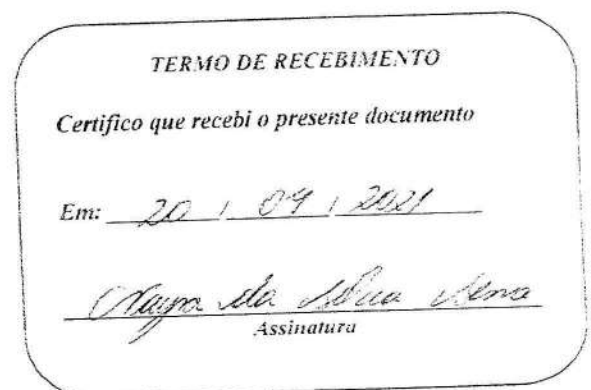 TERMO DE RECEBIMENTO
Certifico que recebi o presente documento
Em: 20 / 09 / 2021
da Silva
Assinatura